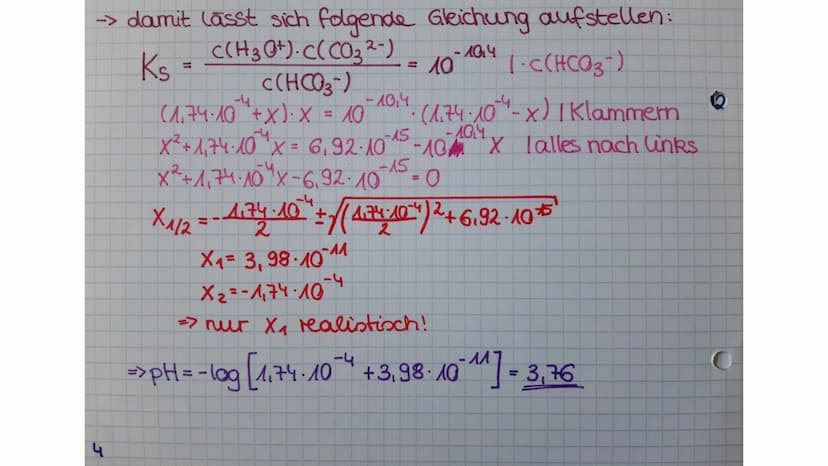 → damit lässt sich folgende Gleichung aufstellen:
Ks = c(H₃O⁺)·c(CO₃²⁻) / c(HCO₃⁻) = 10^-10,4 | · c(HCO₃⁻)
(1,74·10⁻⁴+x)·x = 10^-10,4 · (1,74·10⁻⁴-x) | Klammern
x²+1,74·10⁻⁴x = 6,92·10⁻¹⁵ - 10^-10,4 x | alles nach links
x²+1,74·10⁻⁴x - 6,92·10⁻¹⁵ = 0
x₁/₂ = - 1,74·10⁻⁴/2 ± √((1,74·10⁻⁴/2)² + 6,92·10⁻¹⁵)
x₁ = 3,98·10⁻¹¹
x₂ = -1,74·10⁻⁴
⇒ nur x₁ realistisch!
⇒ pH = -log [1,74·10⁻⁴ + 3,98·10⁻¹¹] = 3,76
4